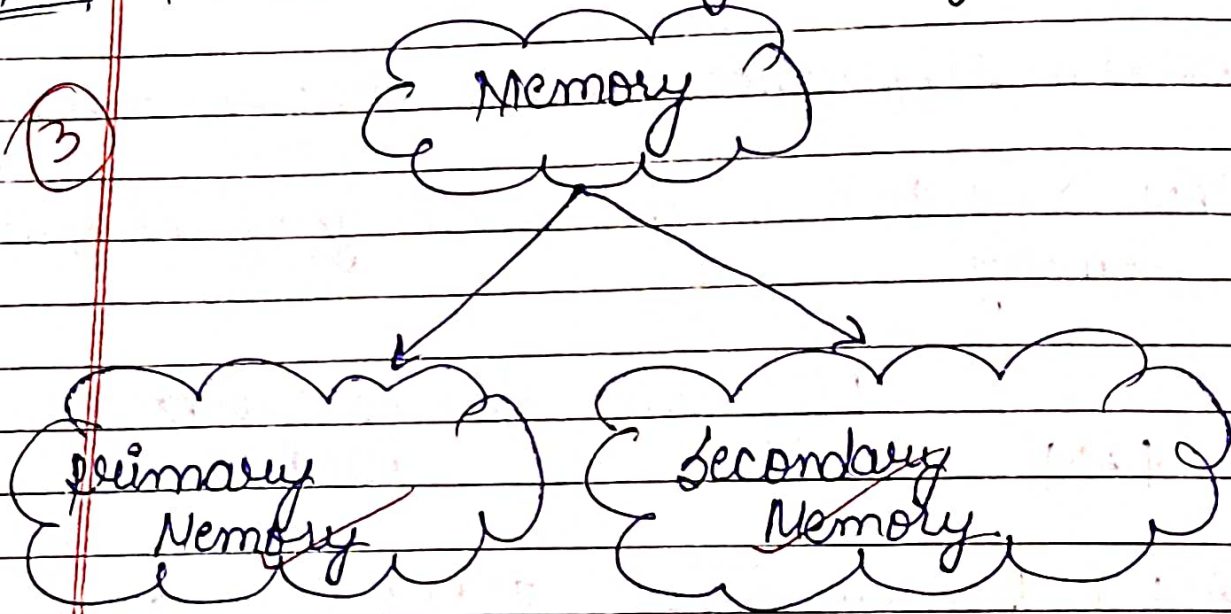 3
Memory
primary
Memory
Secondary
Memory